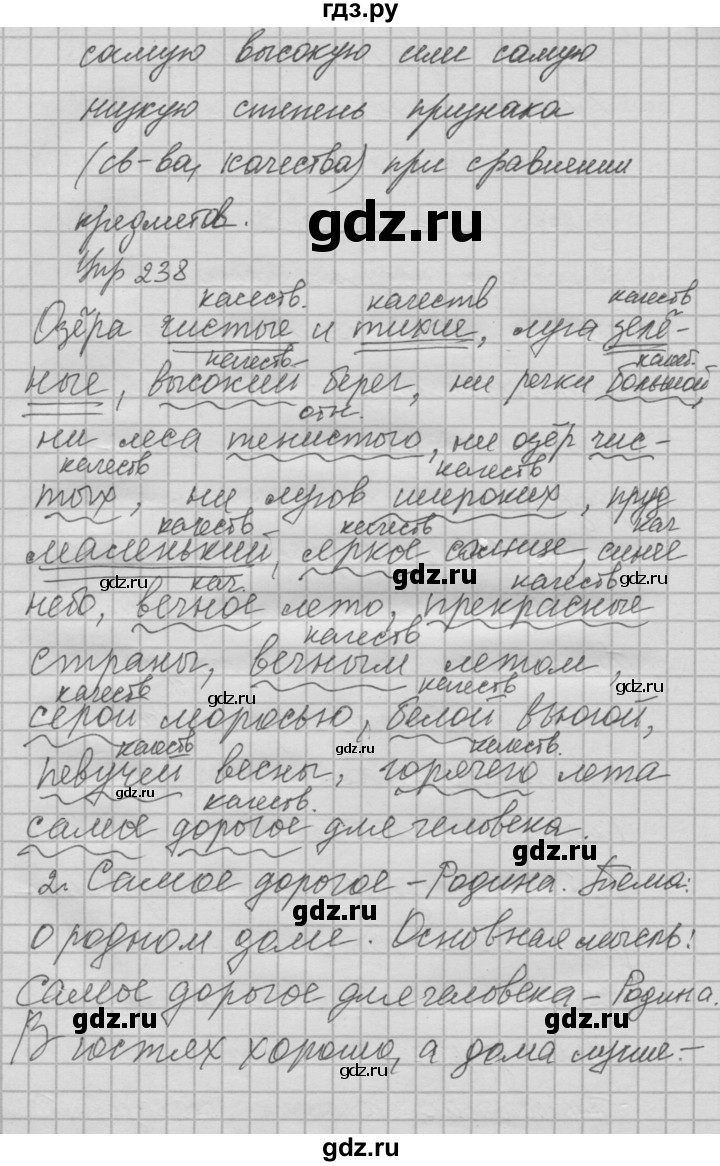 гдз.ру
самую высокую или самую
низкую степень признака
(св-ва, качества) при сравнении
предметов.
gdz.ru
Упр 238
качеств. качеств качеств
Озёра чистые и тихие, луга зелё-
качеств. качест.
ные, высокий берег, ни речки большой,
отн.
ни леса тенистого, ни озёр чис-
качеств качеств
тых, ни лугов широких, пруд
качеств качеств кач
маленький, яркое солнце, синее
gdz.ru gdz.ru gdz.ru
кач. качеств
небо, вечное лето, прекрасные
качеств
страны, вечным летом,
качеств gdz.ru качеств
серой моросью, белой вьюгой,
качеств gdz.ru качеств.
певучей весны, горячего лета
gdz.ru качеств.
самое дорогое для человека.
gdz.ru
2. Самое дорогое – Родина. Тема:
gdz.ru
о родном доме. Основная мысль:
Самое дорогое для человека – Родина.
gdz.ru gdz.ru
В гостях хорошо, а дома лучше. –
gdz.ru
gdz.ru